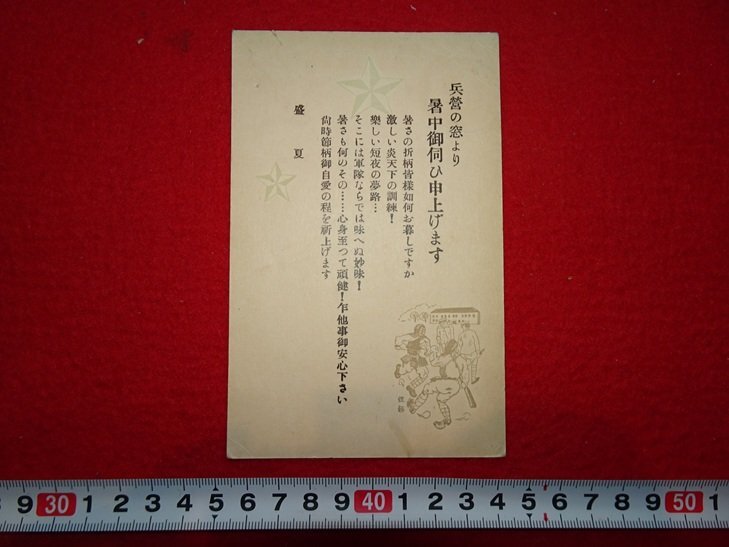 兵營の窓より
暑中御伺ひ申上げます
暑さの折柄皆樣如何お暮しですか
激しい炎天下の訓練！
樂しい短夜の夢路…
そこには軍隊ならでは味へぬ妙味！
暑さも何のその……心身至つて頑健！乍他事御安心下さい
尙時節柄御自愛の程を祈上げます
盛夏
9 30 1 2 3 4 5 6 7 8 9 40 1 2 3 4 5 6 7 8 9 50 1